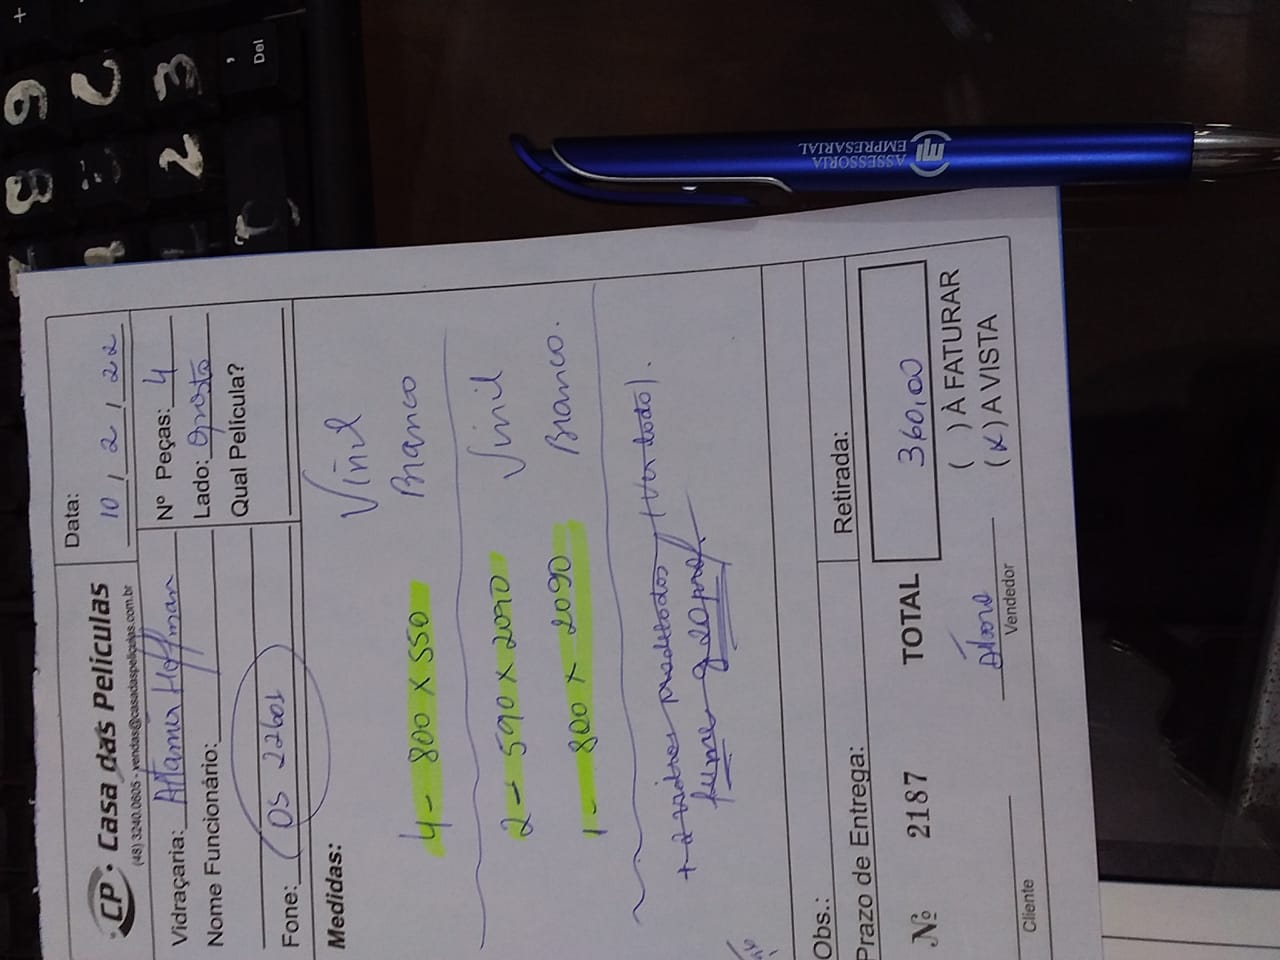 CP. Casa das Películas
(48) 3240.0605 - vendas@casadaspeliculas.com.br
Data:
10 / 2 / 22
Vidraçaria: Altamir Hoffman
Nº Peças: 4
Nome Funcionário:
Lado: oposto
Qual Película?
Fone: (OS 22601
Medidas:
Vinil
4 - 800 x 550 Branco
2 - 590 x 2090 Vinil
1 - 800 x 2090 Branco.
+ 2 vidros (ver todo).
Obs.:
Prazo de Entrega:
Retirada:
Nº 2187 TOTAL 360,00
( ) À FATURAR
(x) A VISTA
Cliente
Vendedor
ASSESSORIA
EMPRESARIAL
+
8 9
2 3
,
Del